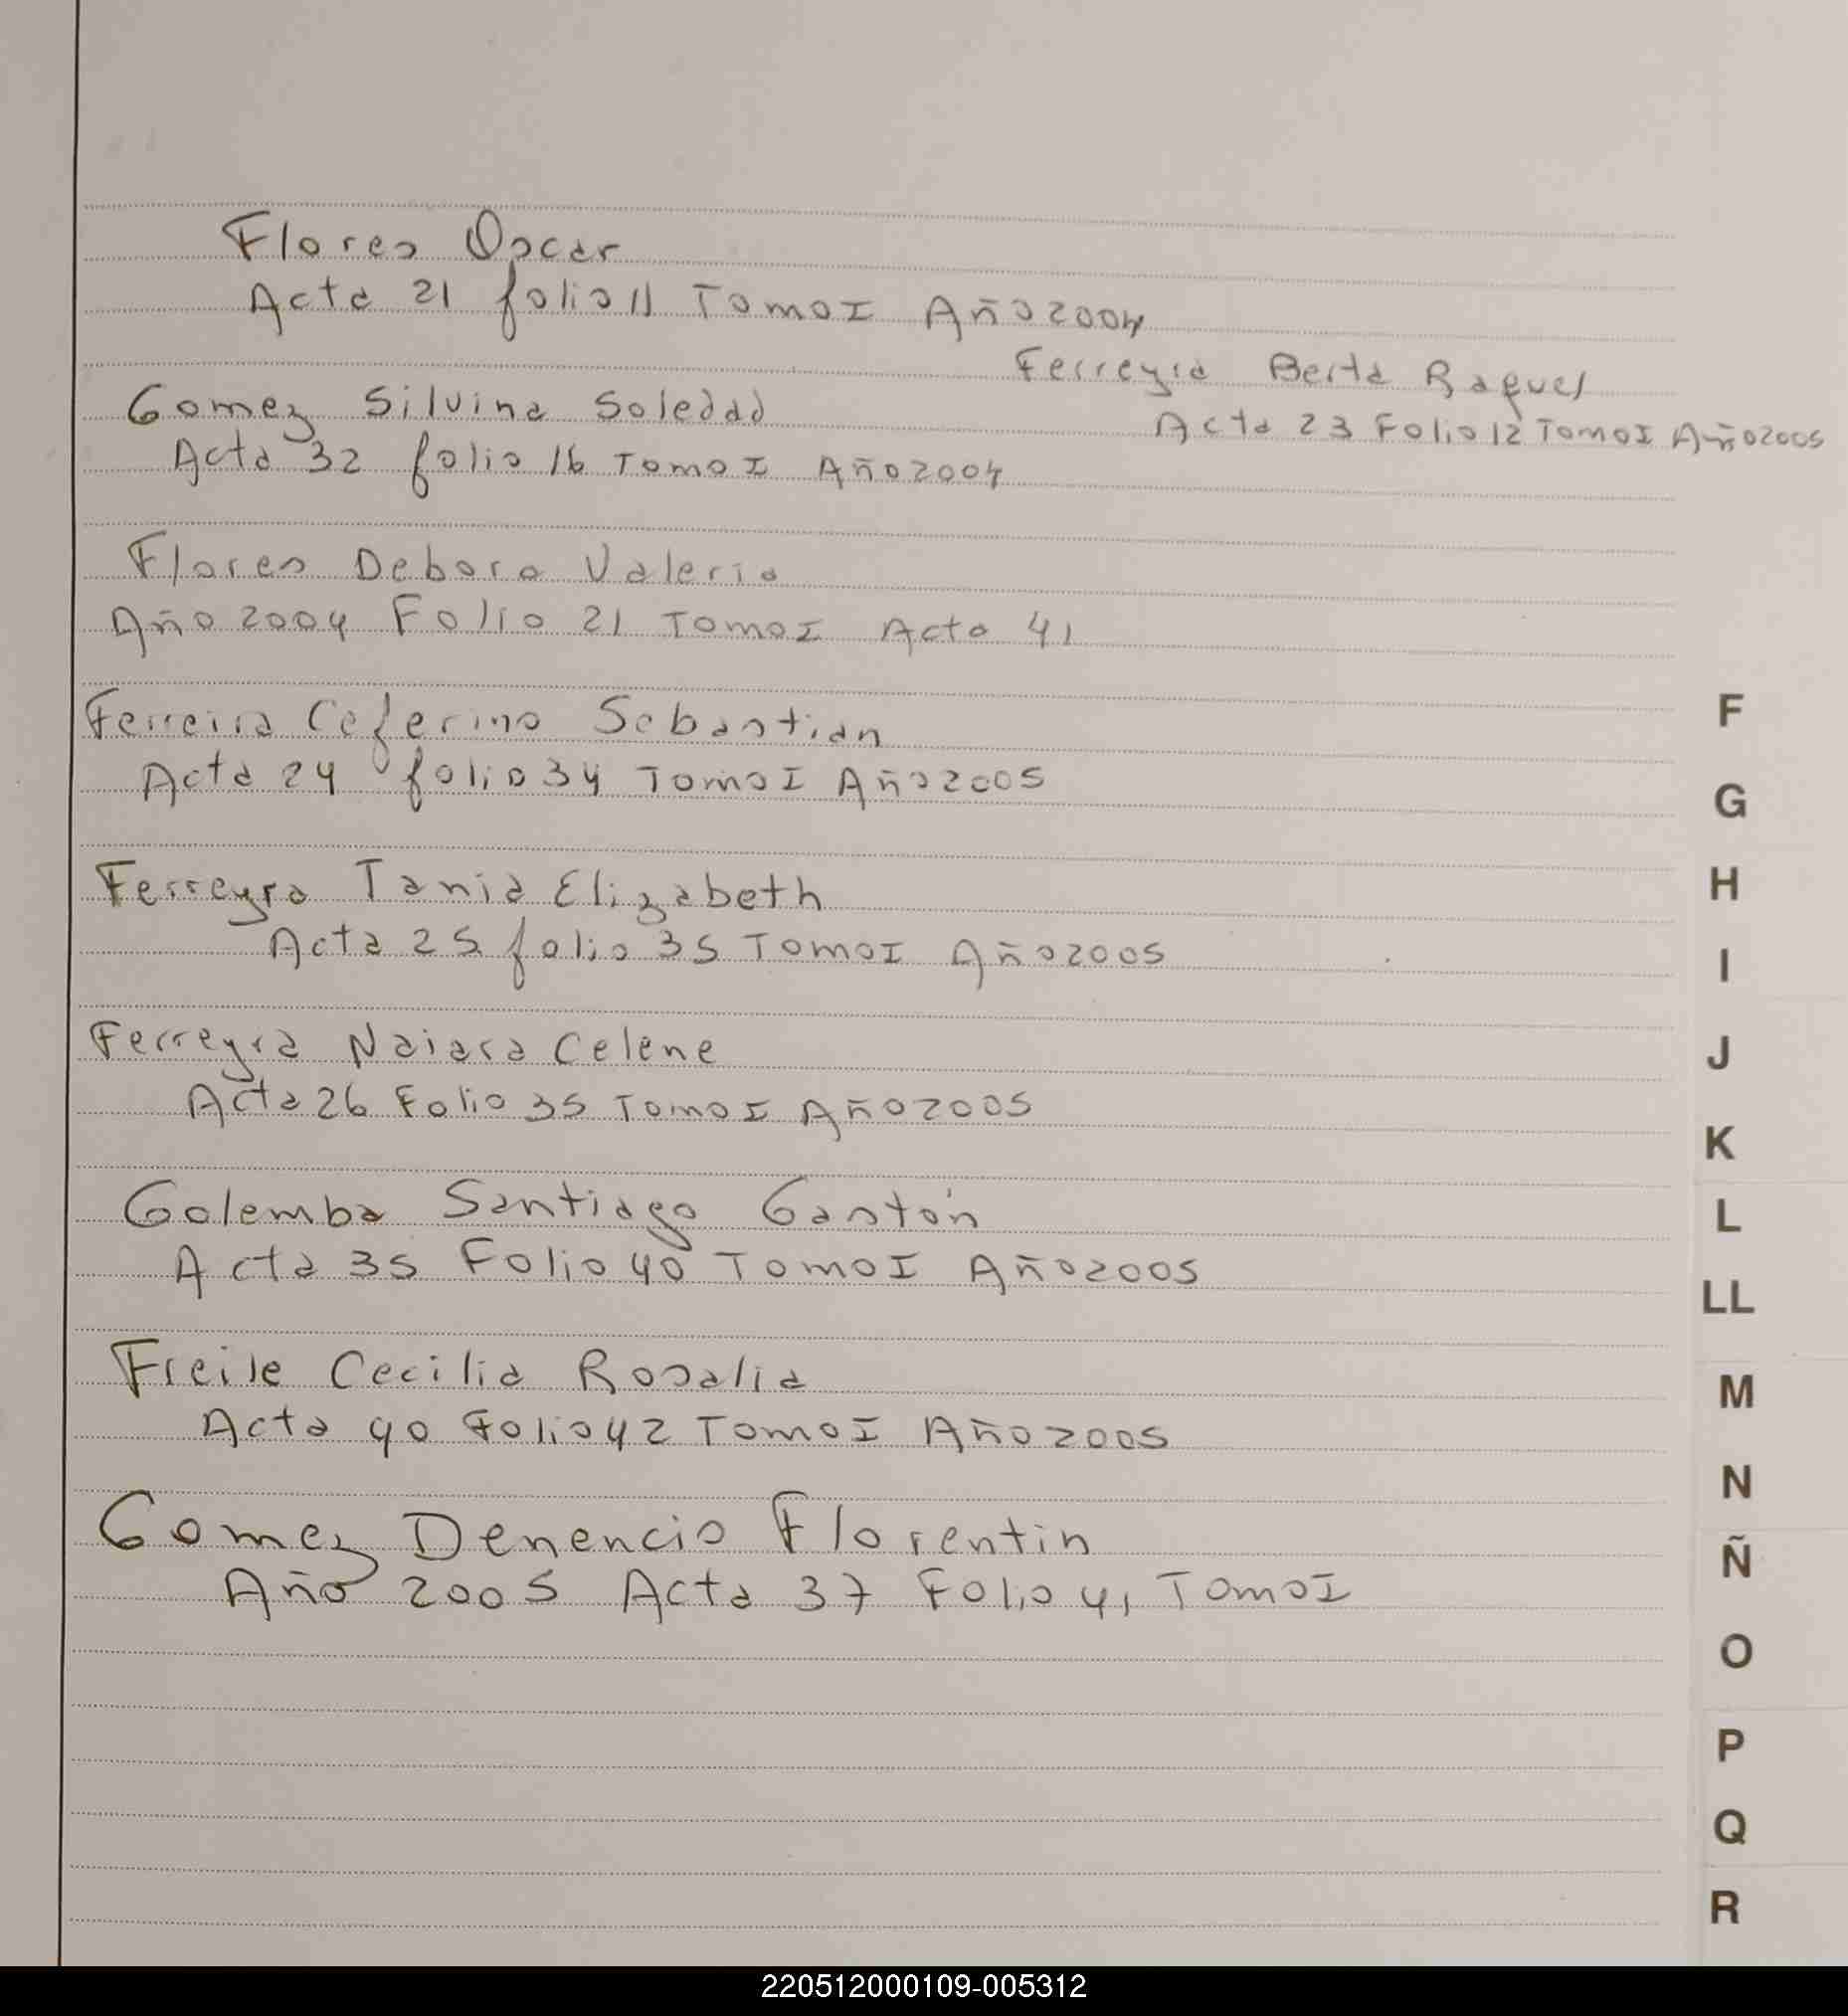 Flores Oscar
Acta 21 folio 11 Tomo I Año 2004
Ferreyra Berta Raquel
Acta 23 Folio 12 Tomo I Año 2005
Gomez Silvina Soledad
Acta 32 folio 16 Tomo I Año 2004
Flores Debora Valeria
Año 2004 Folio 21 Tomo I Acta 41
Ferreira Ceferino Sebastian
Acta 24 folio 34 Tomo I Año 2005
Ferreyra Tania Elizabeth
Acta 25 folio 35 Tomo I Año 2005
Ferreyra Naiara Celene
Acta 26 Folio 35 Tomo I Año 2005
Golemba Santiago Gastón
Acta 35 Folio 40 Tomo I Año 2005
Freile Cecilia Rosalia
Acta 40 Folio 42 Tomo I Año 2005
Gomez Denencio Florentin
Año 2005 Acta 37 Folio 41 Tomo I
F
G
H
I
J
K
L
LL
M
N
Ñ
O
P
Q
R
220512000109-005312